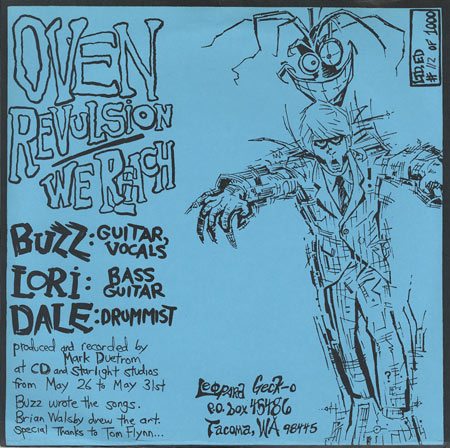 OVEN
REVULSION
WE REACH
BUZZ: GUITAR, VOCALS
LORI: BASS GUITAR
DALE: DRUMMIST
produced and recorded by
Mark Duetrom
at CD and Starlight studios
from May 26 to May 31st
Buzz wrote the songs.
Brian Walsby drew the art.
Special Thanks to Tom Flynn...
# 112 of 1000
Leopard Geck-o
P.O. Box 45486
Tacoma, WA 98445